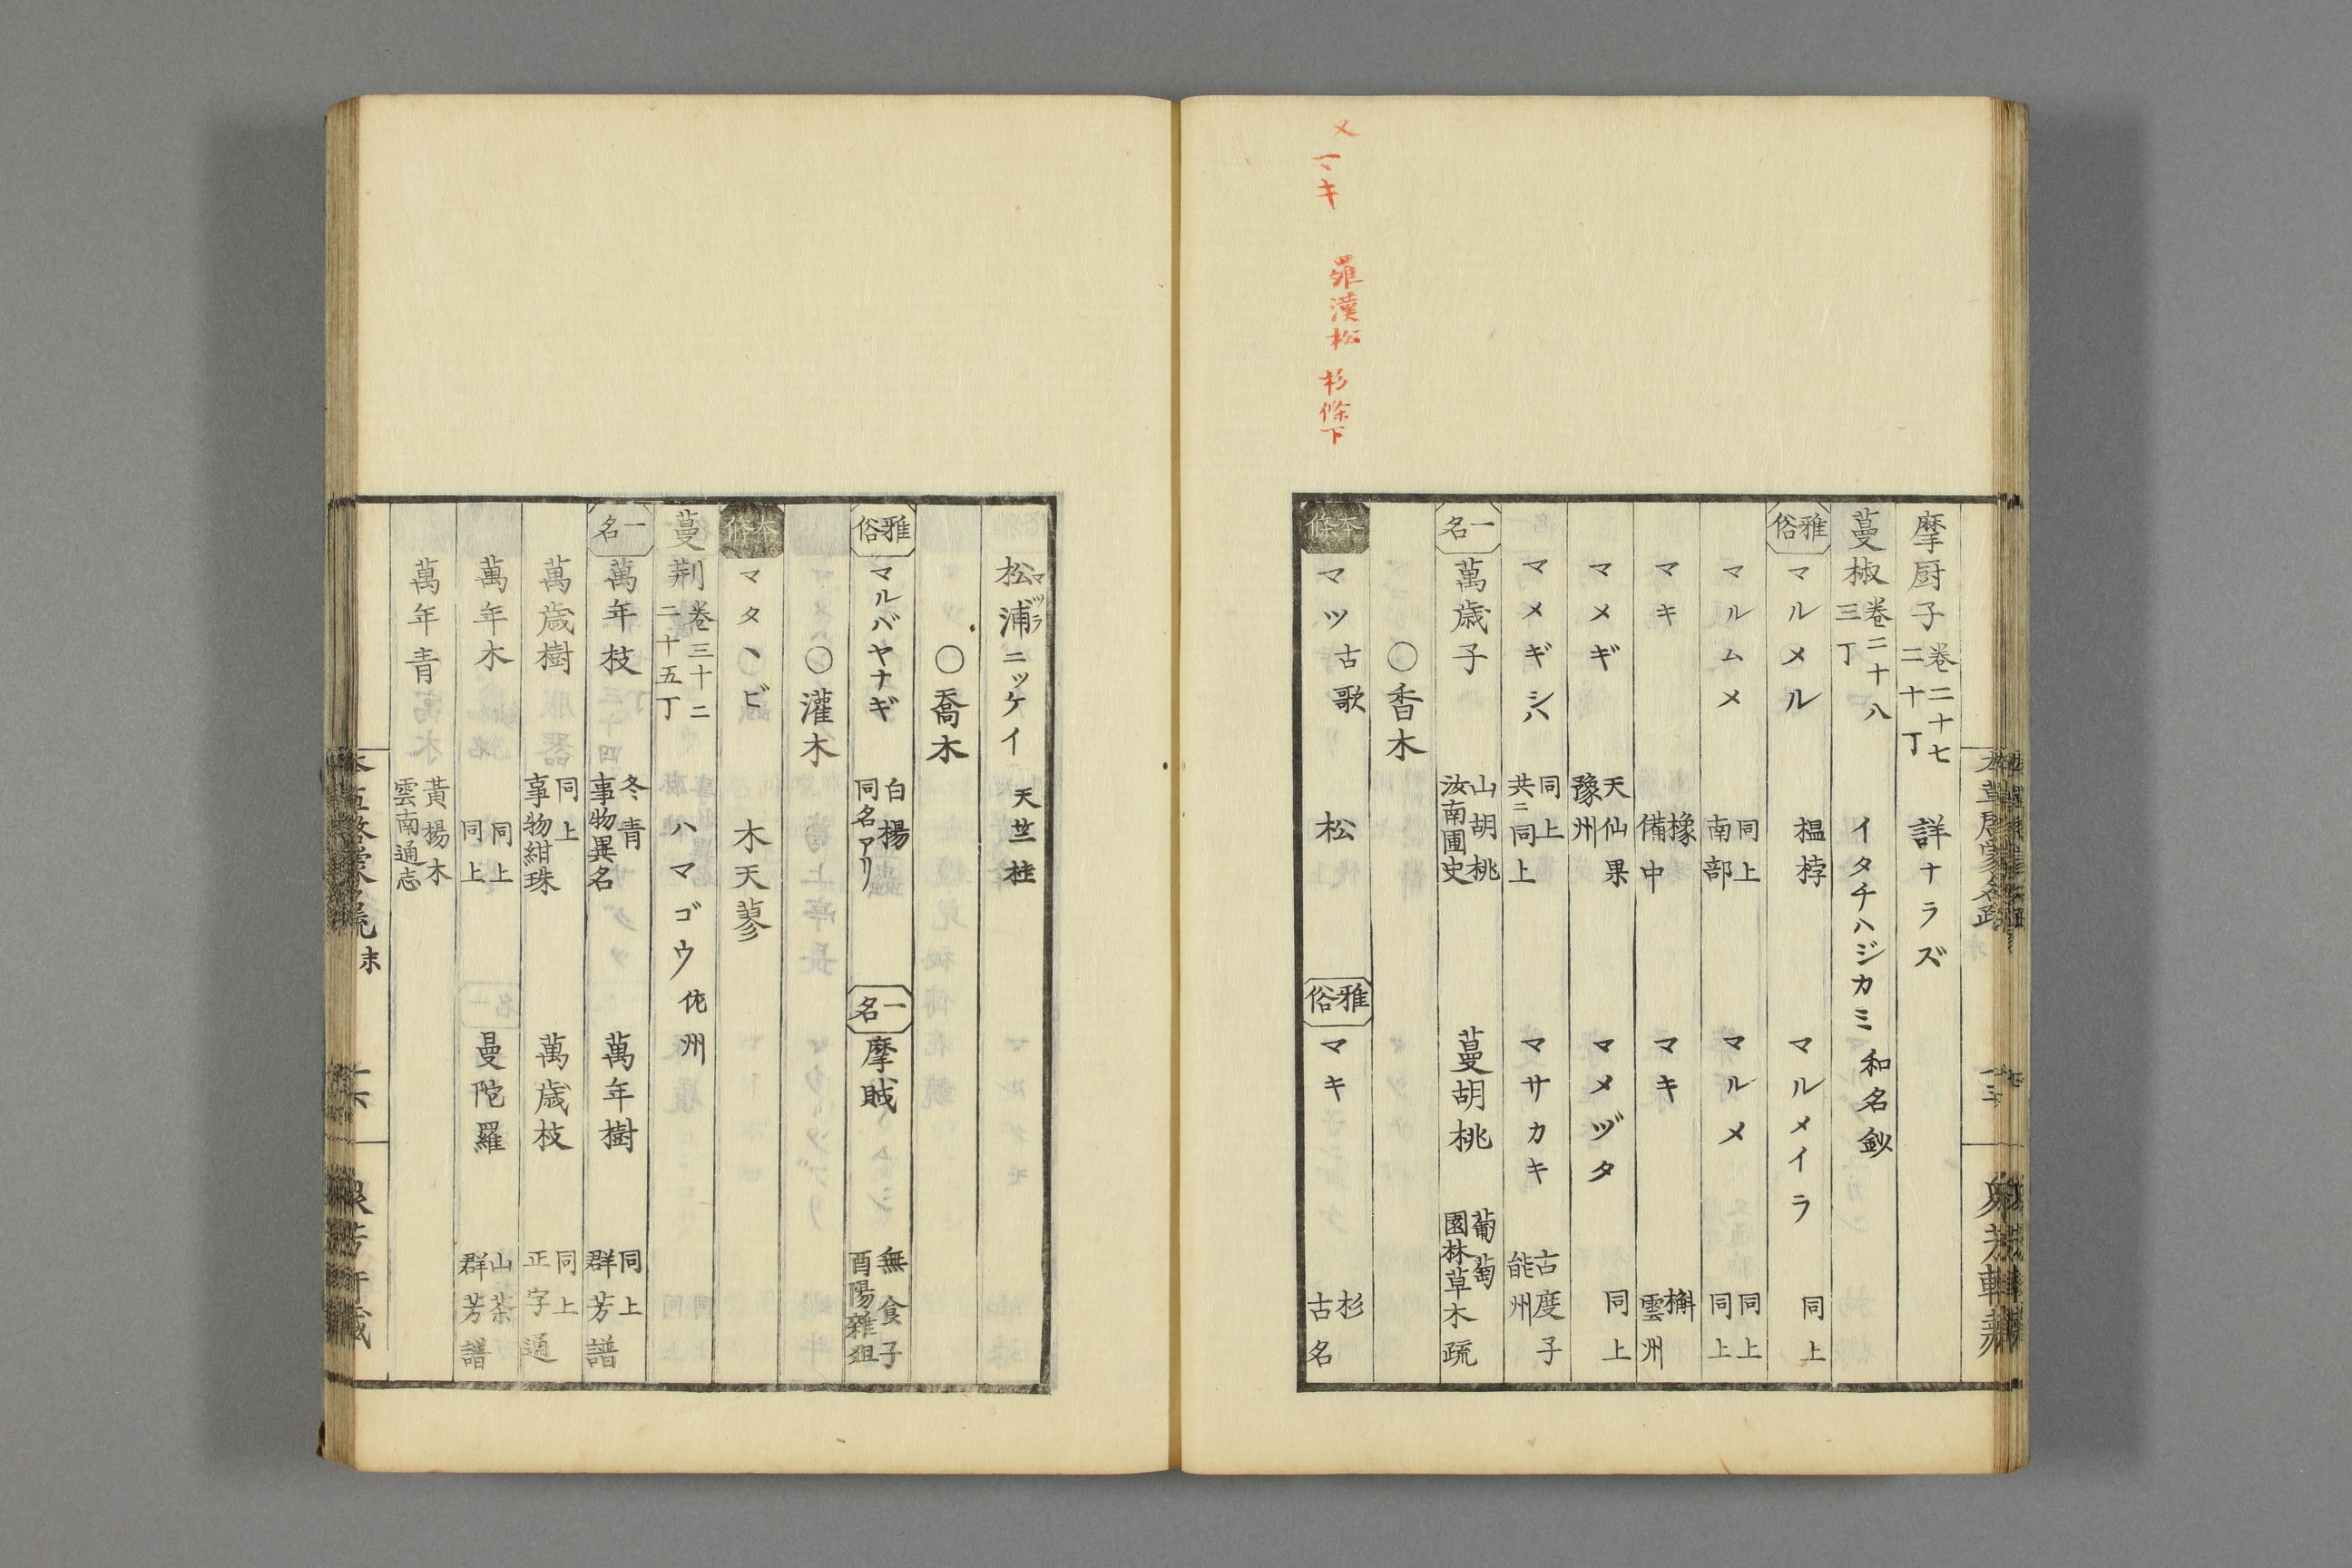 又マキ 羅漢松 杉條下
摩厨子 卷二十七 二十丁 詳ナラズ
蔓椒 卷二十八 三丁 イタチハジカミ 和名鈔
雅俗 マルメル 榲桲 マルメイラ 同上
マルムメ 同上 南部 マルメ 同上 同上
マキ 橡 備中 マキ 檞 雲州
マメギ 天仙果 豫州 マメヅタ 同上
マメギシバ 同上 共ニ同上 マサカキ 古度子 能州
一名 萬歳子 山胡桃 汝南圃史 蔓胡桃 葡萄 園林草木疏
○香木
本條 マツ 古歌 松 雅俗 マキ 杉 古名
松浦ニッケイ マツラ 天竺桂
○喬木
雅俗 マルバヤナギ 白楊 同名アリ 一名 摩賊 無食子 酉陽雜俎
○灌木
本條 マタヽビ 木天蓼
蔓荆 卷三十二 二十五丁 ハマゴウ 佐州
一名 萬年枝 冬青 事物異名 萬年樹 同上 群芳譜
萬歳樹 同上 事物紺珠 萬歳枝 同上 正字通
萬年木 同上 同上 曼陀羅 山茶 群芳譜
萬年青 黃楊木 雲南通志